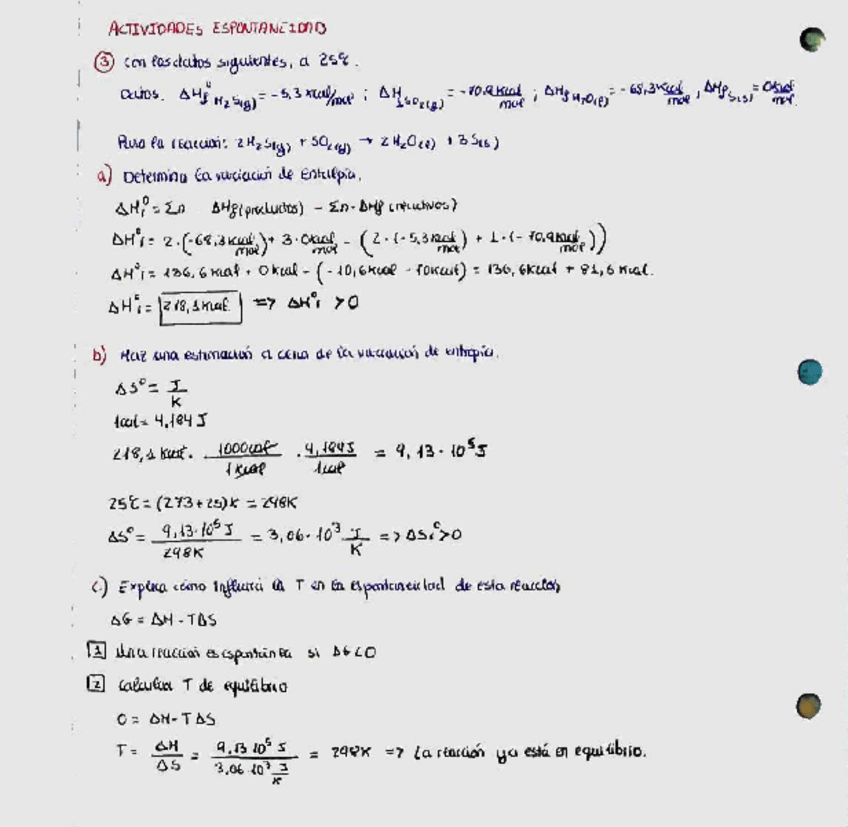 ACTIVIDADES ESPONTANEIDAD
③ con los datos siguientes, a 25℃.
Datos. ΔHf° H₂S(g) = -5,3 kcal/mol ; ΔHf SO₂(g) = -70,9 kcal/mol ; ΔHf H₂O(l) = -68,3 kcal/mol, ΔHf S(s) = 0 kcal/mol.
Para la reacción: 2H₂S(g) + SO₂(g) → 2H₂O(l) + 3S(s)
a) Determina la variación de Entalpia.
ΔHr° = Σn ΔHf (productos) - Σn·ΔHf (reactivos)
ΔH°r = 2·(-68,3 kcal/mol) + 3·0 kcal/mol - (2·(-5,3 kcal/mol) + 1·(-70,9 kcal/mol))
ΔH°r = 136,6 kcal + 0 kcal - (-10,6 kcal - 70 kcal) = 136,6 kcal + 81,6 kcal.
ΔH°r = 218,1 kcal. => ΔH°r > 0
b) Haz una estimación a cerca de la variación de entropía.
ΔS° = J/K
1cal = 4,184 J
218,1 kcal · 1000cal/1kcal · 4,184J/1cal = 9,13·10⁵ J
25℃ = (273+25)K = 298K
ΔS° = 9,13·10⁵ J/298K = 3,06·10³ J/K => ΔSr° > 0
c) Explica cómo influirá la T en la espontaneidad de esta reacción
ΔG = ΔH - TΔS
1 Una reacción es espontánea si ΔG < 0
2 Calcular T de equilibrio
0 = ΔH - TΔS
T = ΔH/ΔS = 9,13·10⁵ J/3,06·10³ J/K = 298K => La reacción ya está en equilibrio.